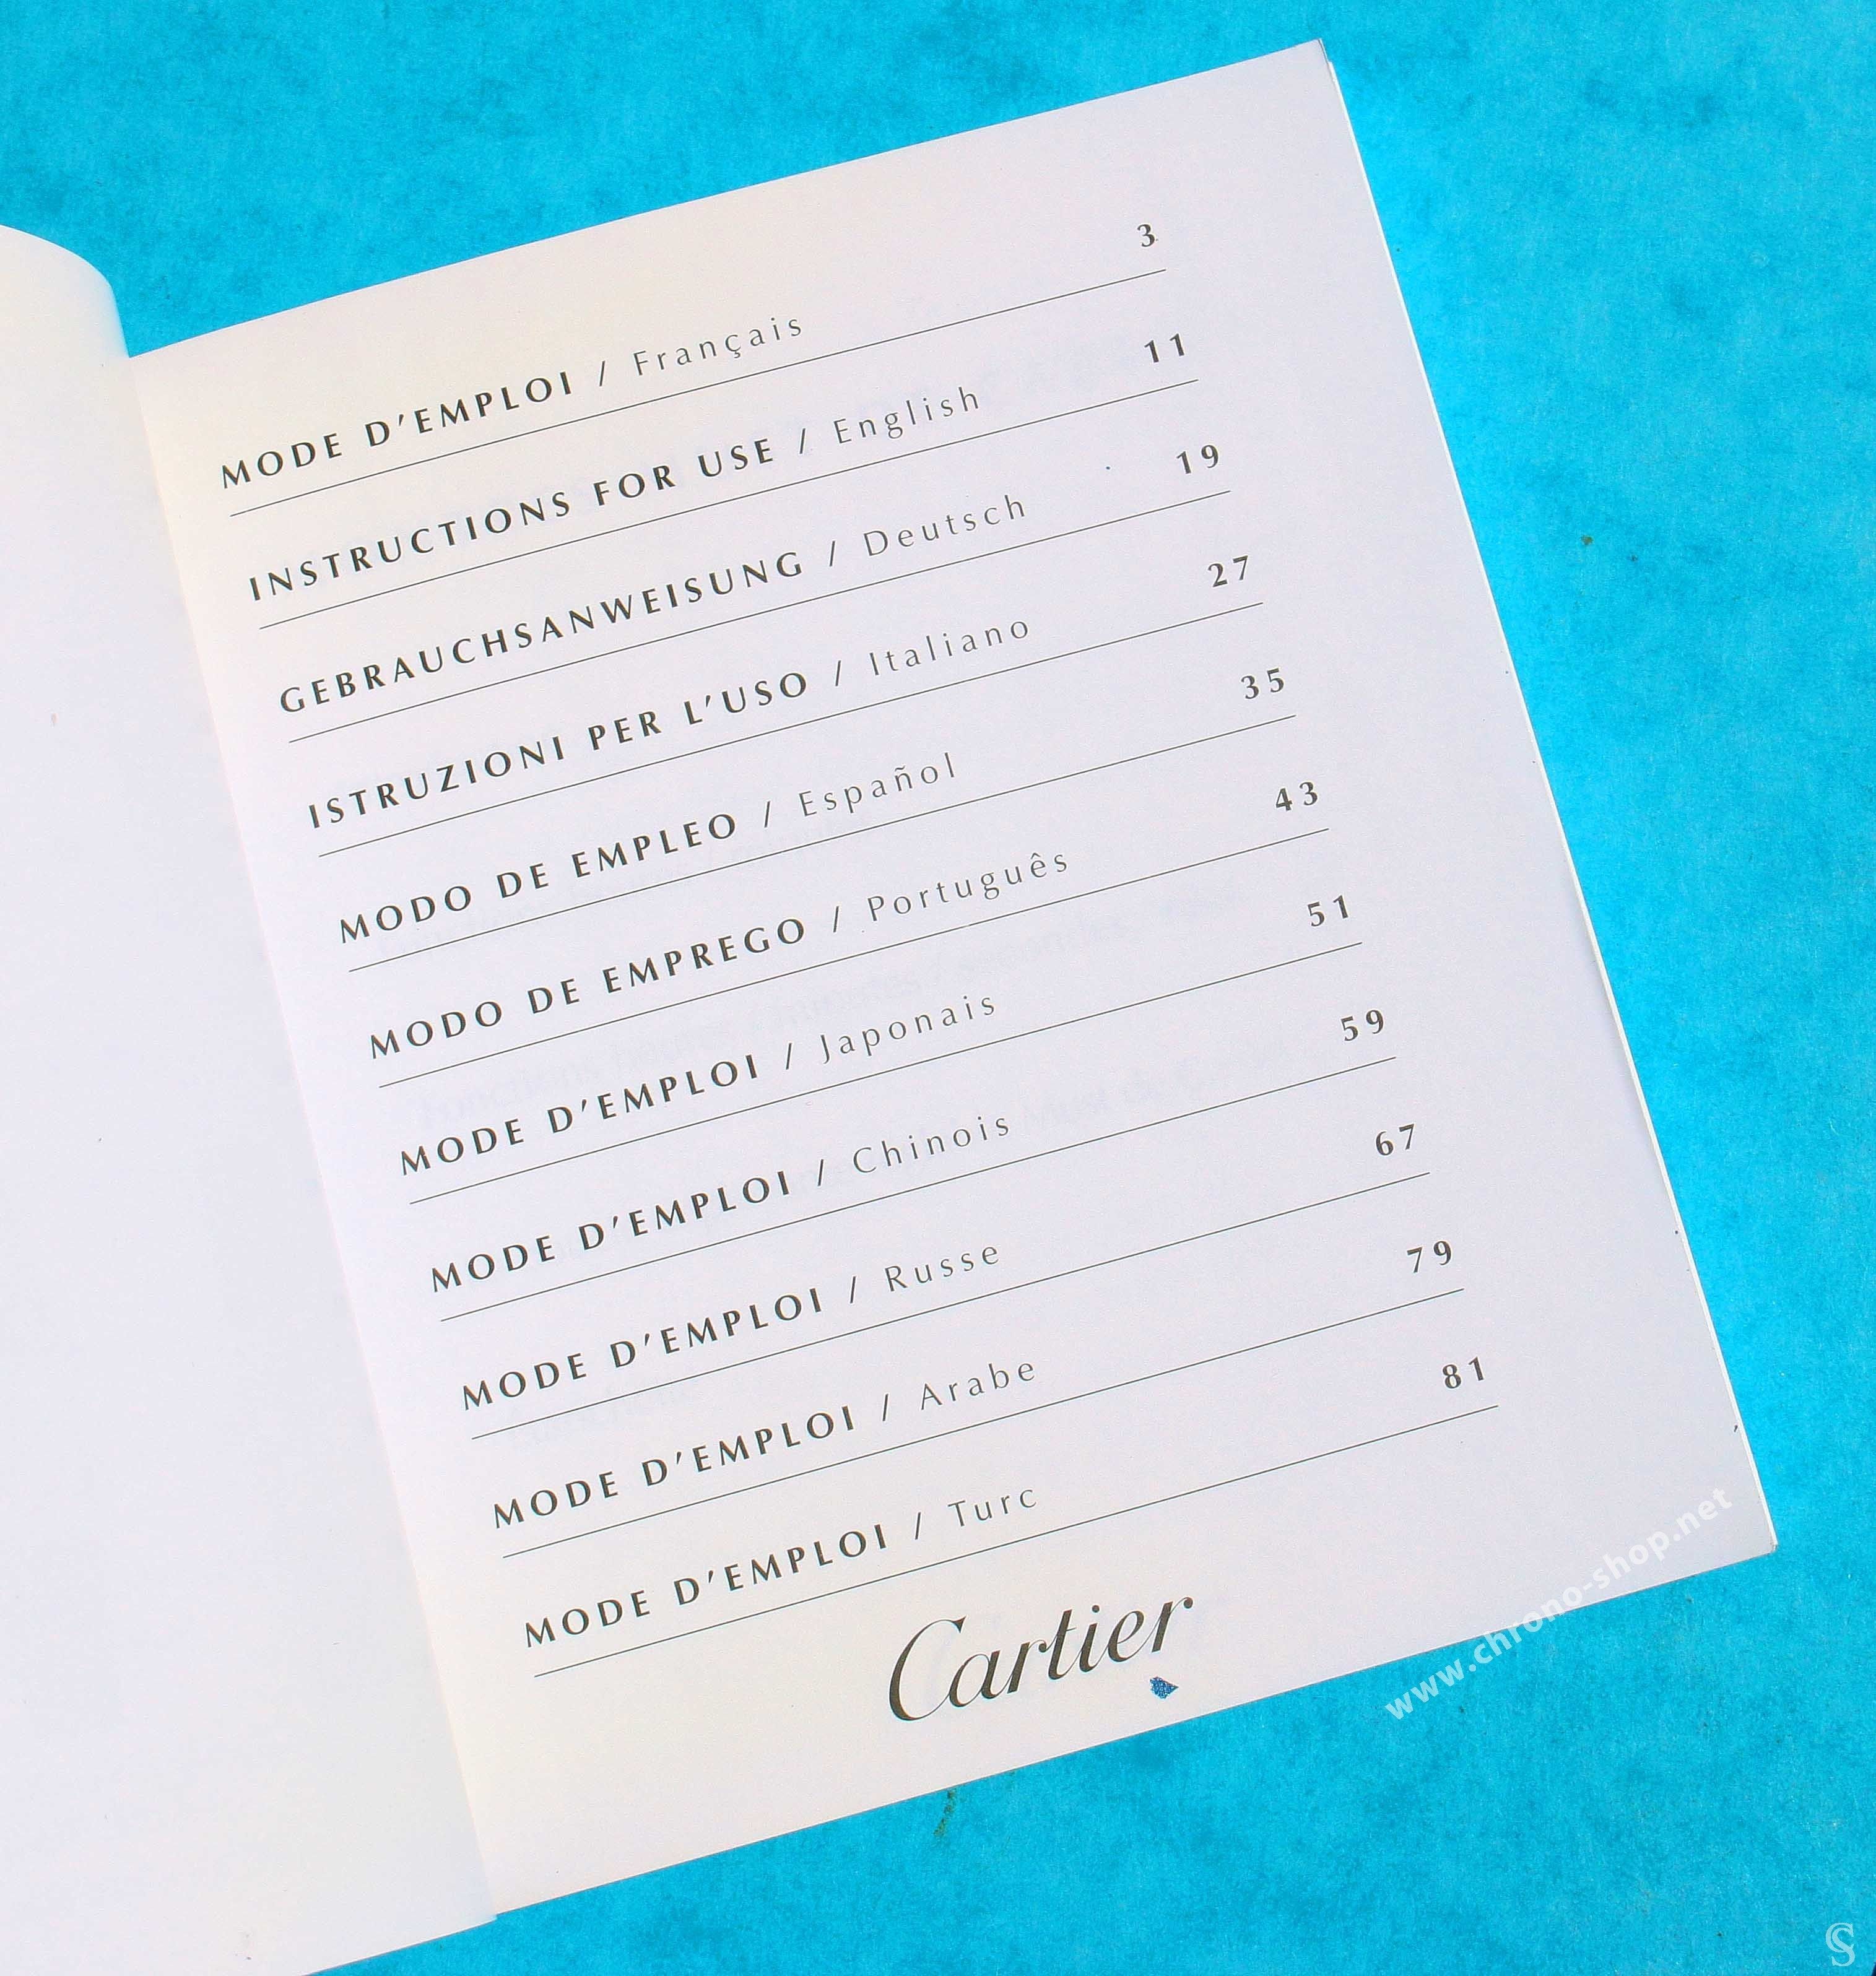 MODE D'EMPLOI / Français 3
INSTRUCTIONS FOR USE / English 11
GEBRAUCHSANWEISUNG / Deutsch 19
ISTRUZIONI PER L'USO / Italiano 27
MODO DE EMPLEO / Español 35
MODO DE EMPREGO / Português 43
MODE D'EMPLOI / Japonais 51
MODE D'EMPLOI / Chinois 59
MODE D'EMPLOI / Russe 67
MODE D'EMPLOI / Arabe 79
MODE D'EMPLOI / Turc 81
Cartier
www.chrono-shop.net